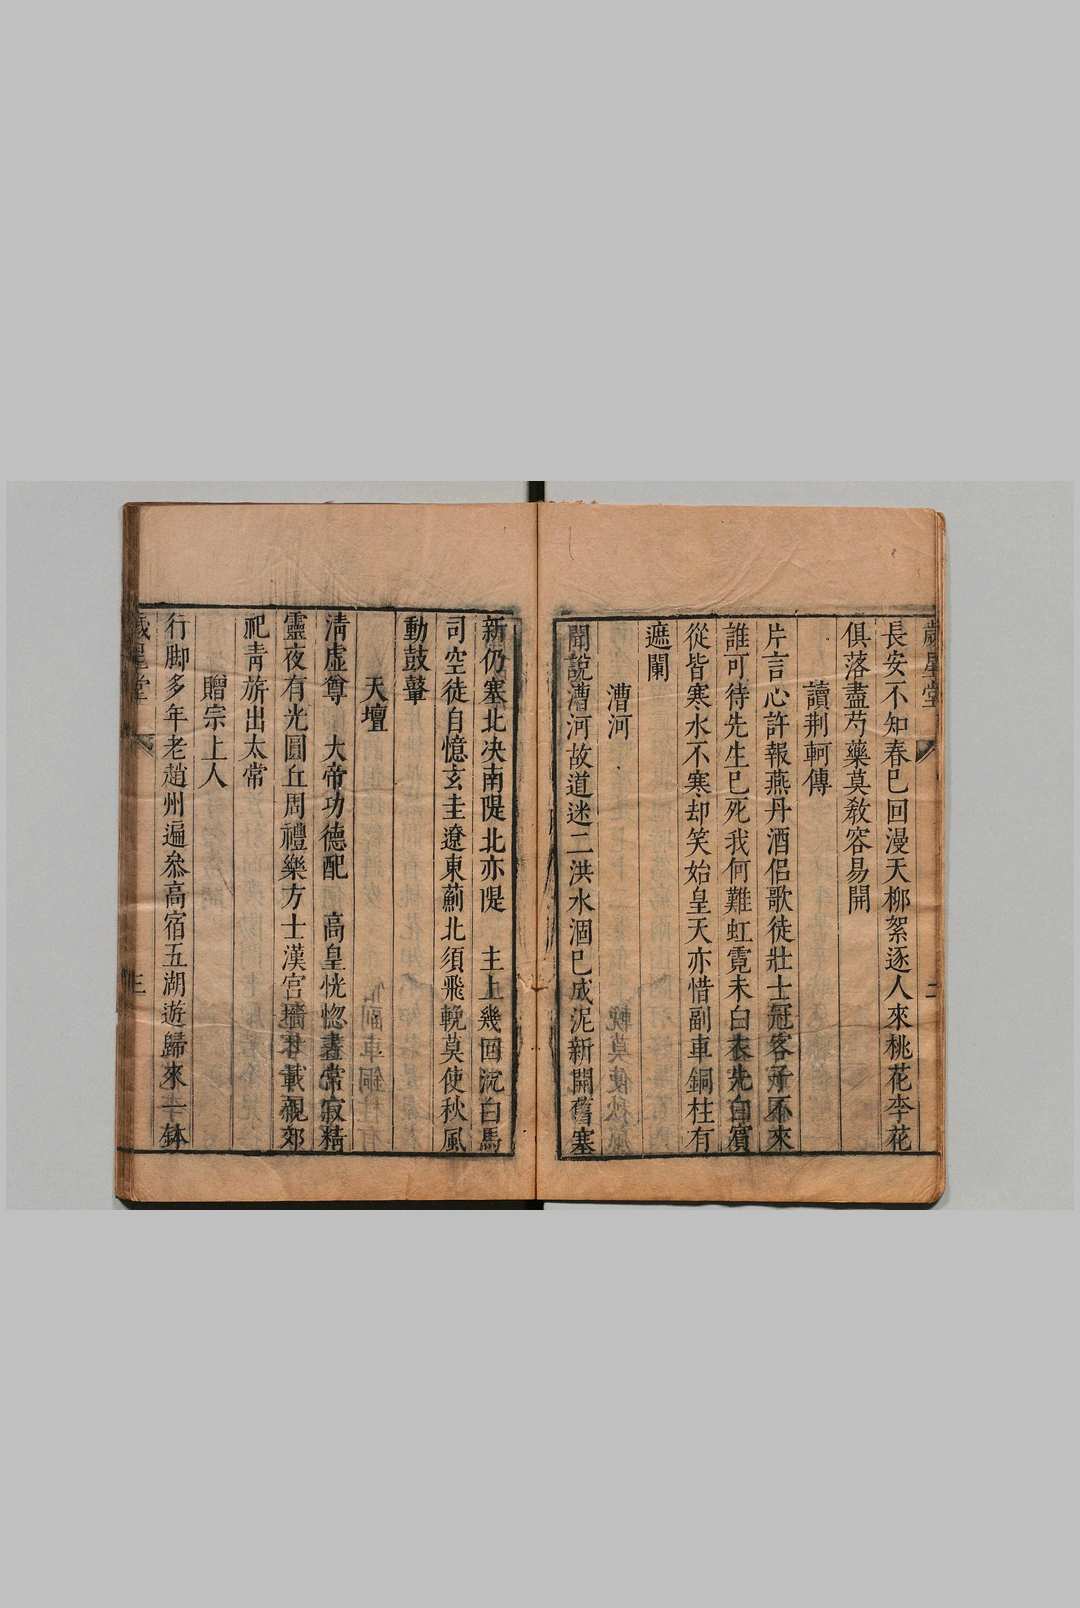 歲星堂
二
長安不知春巳回漫天栁絮逐人來桃花李花
俱落盡芍藥莫敎容易開
讀荆軻傳
片言心許報燕丹酒侣歌徒壯士冠客子不來
誰可待先生巳死我何難虹霓未白衣先白賓
從皆寒水不寒却笑始皇天亦惜副車銅柱有
遮闌
漕河
聞說漕河故道迷二洪水涸巳成泥新開舊塞
新仍塞北决南隄北亦隄 主上幾回沉白馬
司空徒自憶玄圭遼東薊北須飛輓莫使秋風
動鼓鼙
天壇
淸虛尊 大帝功德配 高皇恍惚晝常寂精
靈夜有光圓丘周禮樂方士漢宮牆廿載親郊
祀靑旂出太常
贈宗上人
行脚多年老趙州遍叅高宿五湖遊歸來一鉢
歲星堂
三